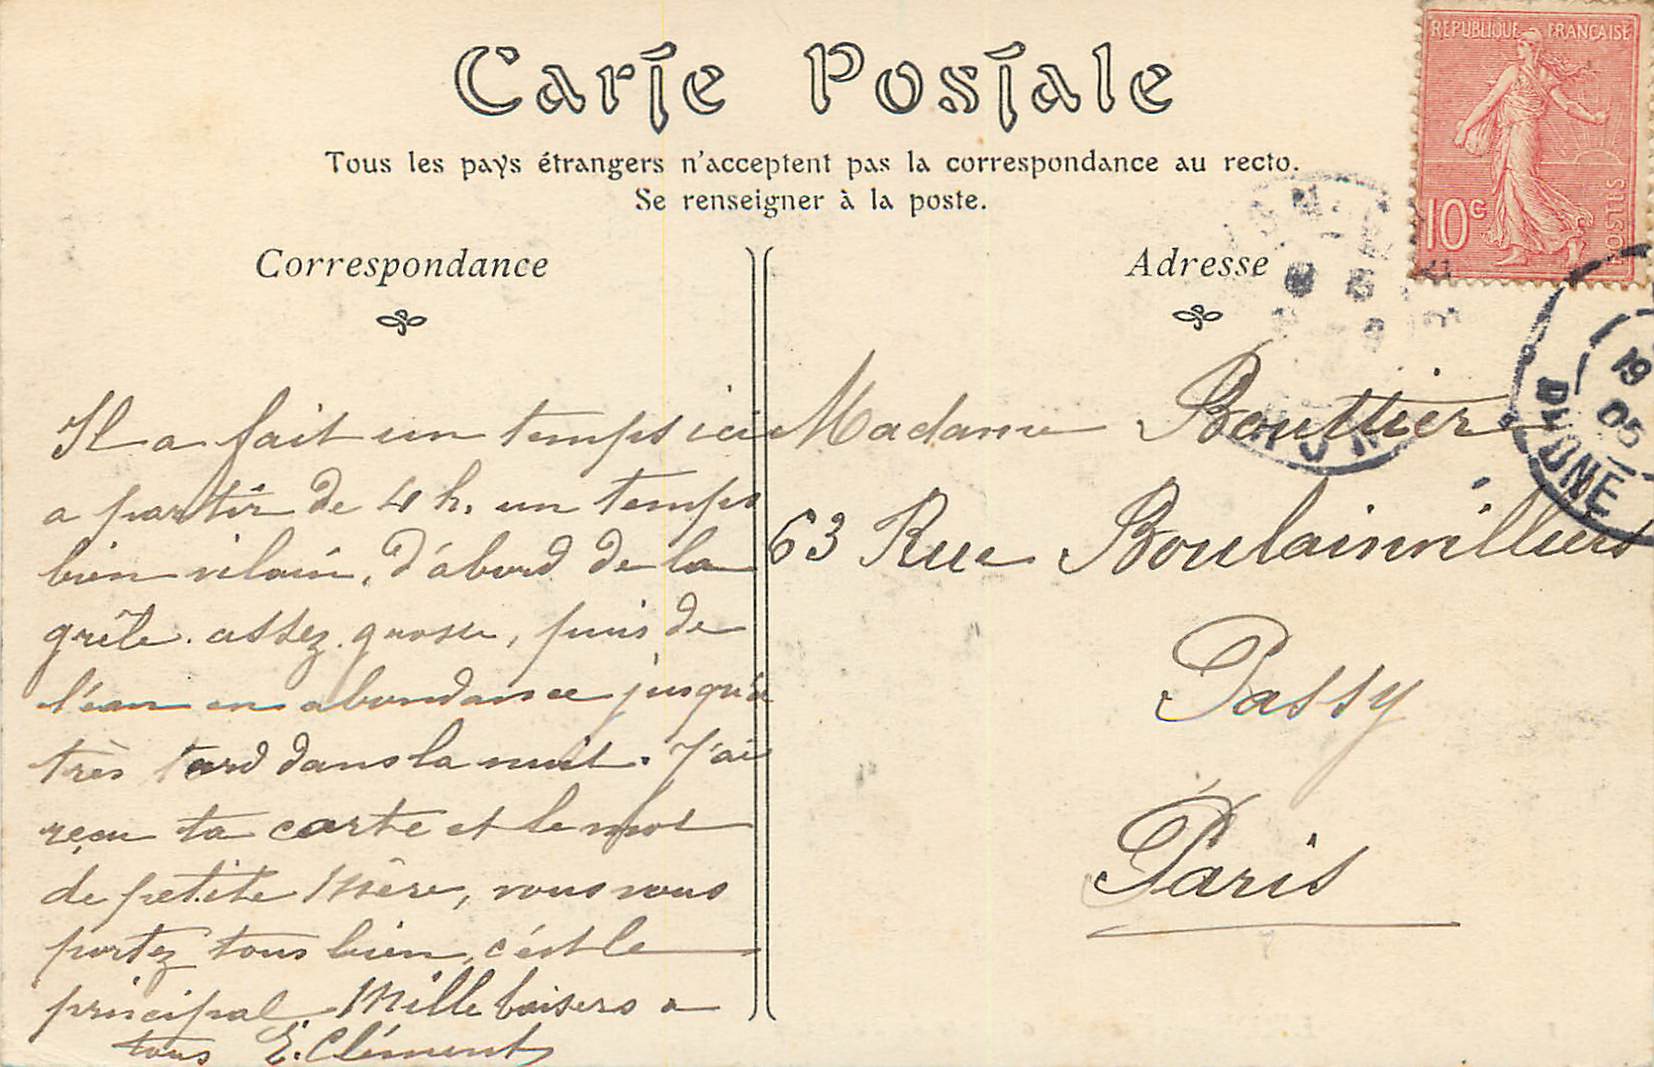 Carte Postale
Tous les pays étrangers n'acceptent pas la correspondance au recto.
Se renseigner à la poste.
Correspondance
Il a fait un temps ici
a partir de 4 h. un temps
bien vilain, d'abord de la
grêle assez grosse, puis de
l'eau en abondance jusqu'à
très tard dans la nuit. J'ai
reçu ta carte et le mot
de petite Mère, vous vous
portez tous bien, c'est le
principal Mille baisers a
tous E. Clément
Adresse
Madame Bouttier
63 Rue Boulainvilliers
Passy
Paris
REPUBLIQUE FRANÇAISE
10c
POSTES
19
05